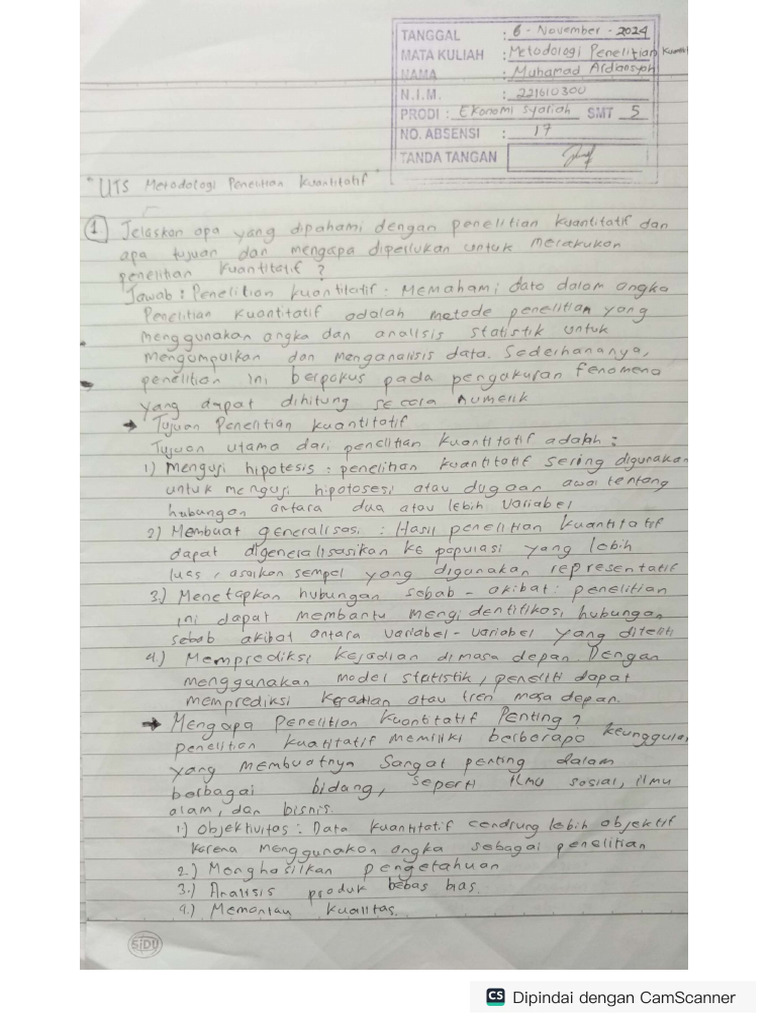 TANGGAL : 6 - November - 2024
MATA KULIAH : Metodologi Penelitian Kuanti
NAMA : Muhamad Ardiansyah
N.I.M. : 221610300
PRODI : Ekonomi Syariah SMT 5
NO. ABSENSI : 17
TANDA TANGAN
"UTS Metodologi Penelitian Kuantitatif"
1. Jelaskan apa yang dipahami dengan penelitian kuantitatif dan
apa tujuan dan mengapa diperlukan untuk merakukan
penelitian kuantitatif ?
Jawab : Penelitian kuantitatif - Memahami data dalam angka
Penelitian kuantitatif adalah metode penelitian yang
menggunakan angka dan analisis statistik untuk
mengumpulkan dan menganalisis data. Sederhananya,
penelitian ini berpokus pada pengakuran fenomena
yang dapat dihitung secara numerik
→ Tujuan Penelitian kuantitatif
Tujuan utama dari penelitian kuantitatif adalah :
1) Menguji hipotesis : penelitian kuantitatif sering digunakan
untuk menguji hipotosesi atau dugaan awal tentang
hubungan antara dua atau lebih variabel
2) Membuat generalisasi : Hasil penelitian kuantitatif
dapat digeneralisasikan ke populasi yang lebih
luas, asalkan sempel yang digunakan representatif
3.) Menetapkan hubungan sebab - akibat : penelitian
ini dapat membantu mengidentifikasi hubungan
sebab akibat antara variabel - variabel yang diteliti
4.) Memprediksi kejadian dimasa depan. Dengan
menggunakan model statistik, peneliti dapat
memprediksi kejadian atau tren masa depan.
→ Mengapa Penelitian Kuantitatif Penting ?
penelitian kuatitatif memiliki berbarapa keunggulan
yang membuatnya sangat penting dalam
berbagai bidang, seperti ilmu sosial, ilmu
alam, dan bisnis.
1) Objektivitas : Data kuantitatif cendrung lebih objektif
karena menggunakan angka sebagai penelitian
2.) Menghasilkan pengetahuan
3.) Analisis produk bebas bias
4.) Memantau kualitas.
SiDU
CS Dipindai dengan CamScanner